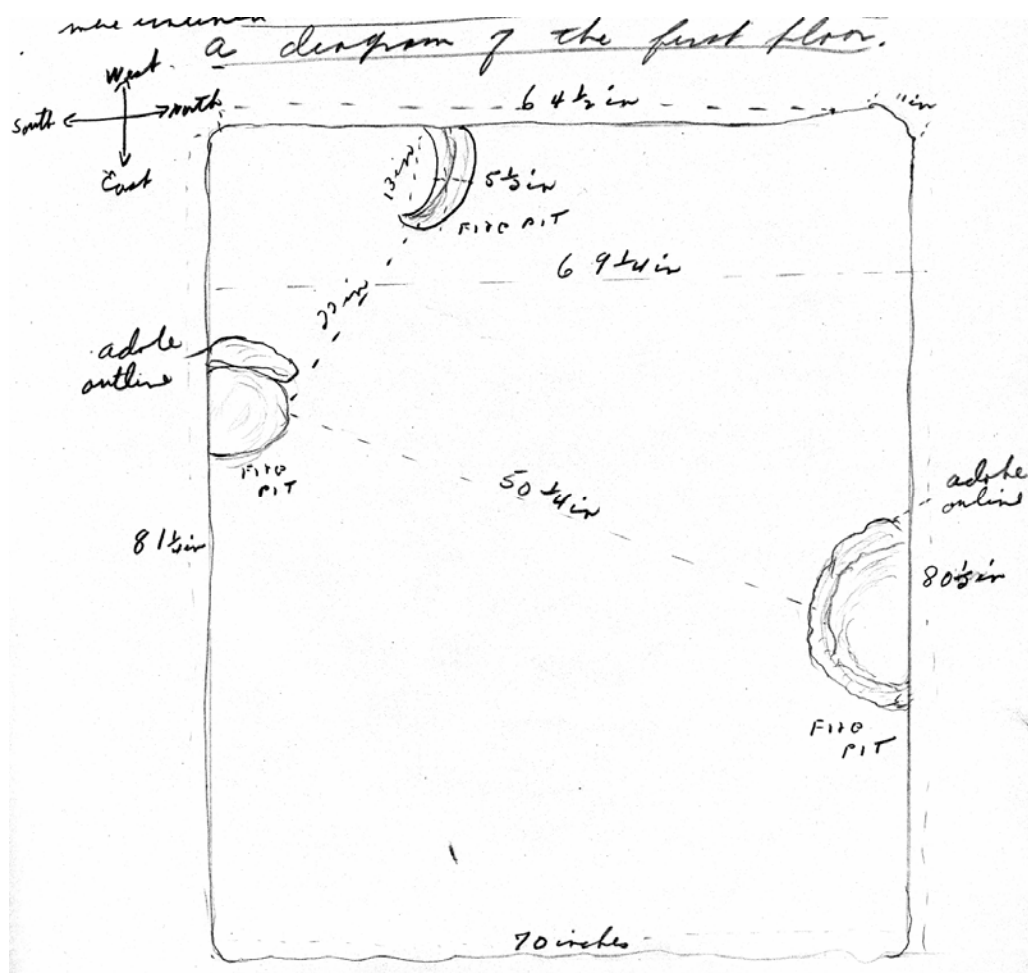 a diagram of the first floor.
West
South
North
East
64 1/2 in
11 in
13 in
5 1/2 in
FIRE PIT
69 1/4 in
27 in
adobe
outline
FIRE
PIT
50 1/4 in
adobe
outline
81 1/4 in
80 1/2 in
FIRE
PIT
70 inches